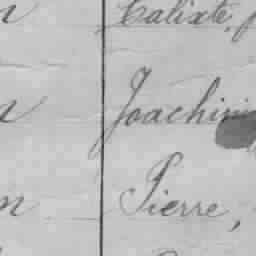 Calixte,
Joachim
Pierre,